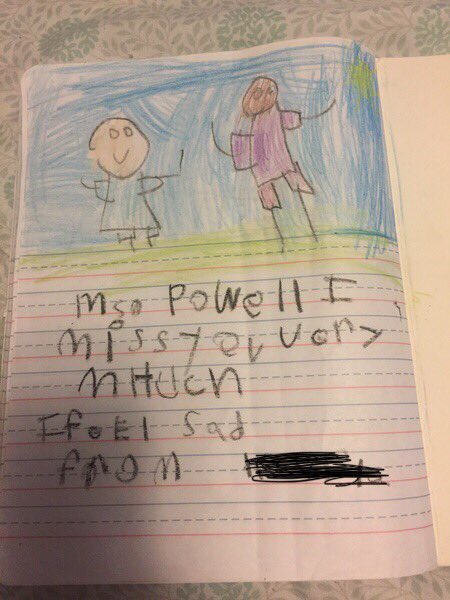 Mso Powell I
miss yov very
mHucn
I foEl sad
fRom